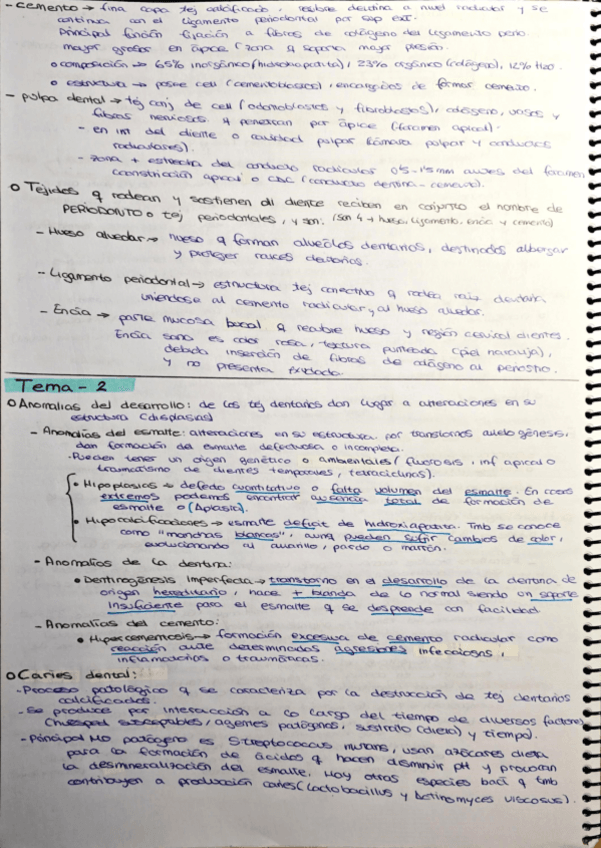 - Cemento → fina capa tej calcificado, recubre dentina a nivel radicular y se
continua con el ligamento periodontal por sup ext.
Principal función fijación a fibras de colágeno del ligamento perio.
mayor grosor en ápice (zona q soporta mayor presión.
o composición → 65% inorgánico (hidroxiapatita), 23% orgánico (colágeno), 12% H2O.
o estructura → posee cell (cementoblastos), encargados de formar cemento.
- pulpa dental → tej conj de cell (odontoblastos y fibroblastos), colágeno, vasos y
fibras nerviosas q penetran por ápice (foramen apical).
- en int del diente o cavidad pulpar (cámara pulpar y conductos
radiculares).
- zona + estrecha del conducto radicular 0'5-1'5 mm antes del foramen
(constricción apical o CDC (conducto dentina-cemento).
o Tejidos q rodean y sostienen al diente reciben en conjunto el nombre de
PERIODONTO o tej periodontales, y son: (son 4 → hueso, ligamento, encía y cemento)
- Hueso alveolar → hueso q forman alveolos dentarios, destinados albergar
y proteger raíces dentarias.
- Ligamento periodontal → estructura tej conectivo q rodea raíz dentaria
uniendose al cemento radicular y al hueso alveolar.
- Encía → parte mucosa bucal q recubre hueso y región cervical dientes.
Encía sana es color rosa, textura punteada (piel naranja),
debido inserción de fibras de colágeno al periostio.
y no presenta exudado.
Tema - 2
o Anomalías del desarrollo: de los tej dentarios dan lugar a alteraciones en su
estructura (displasias)
- Anomalías del esmalte: alteraciones en su estructura por transtornos
dan formación de esmalte defectuosa o incompleta.
- Pueden tener un origen genético o ambientales (fluorosis, inf apical o
traumatismo de dientes temporales, tetraciclinas).
• Hipoplasias → defecto cuantitativo o falta volumen del esmalte. En casos
extremos podemos encontrar ausencia total de formación de
esmalte o (Aplasia).
• Hipocalcificaciones → esmalte deficit de hidroxiapatita. Tmb se conoce
como "manchas blancas", aunq pueden sufrir cambios de color,
evolucionando al amarillo, pardo o marrón.
- Anomalías de la dentina:
• Dentinogénesis Imperfecta → transtorno en el desarrollo de la dentina de
origen hereditario, hace + blanda de lo normal siendo un soporte
insuficiente para el esmalte q se desprende con facilidad.
- Anomalías del cemento:
• Hipercementosis → formación excesiva de cemento radicular como
reacción ante determinadas agresiones infecciosas,
inflamatorios o traumáticas.
o Caries dental:
- Proceso patológico q se caracteriza por la destrucción de tej dentarios
calcificados.
- Se produce por interacción a lo largo del tiempo de diversos factores
(huesped susceptables, agentes patógenos, sustrato (dieta) y tiempo).
- Principal MO patógeno es Streptococcus mutans, usan azúcares dieta
para la formación de ácidos q hacen disminuir pH y provocan
la desmineralización del esmalte. Hay otras especies bact q tmb
contribuyen a producción caries (lactobacillus y Actinomyces viscosus).